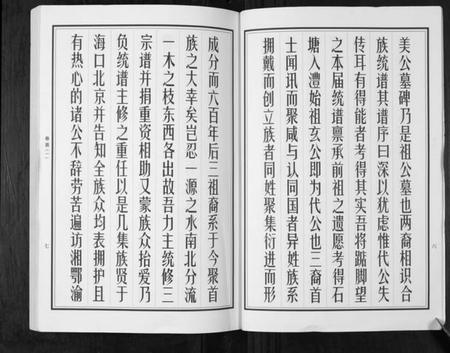 美公墓碑乃是祖公墓也两裔相识合
族统谱其谱序曰深以犹虑惟代公失
传耳有得能者考得其实吾将踮脚望
之本届统谱禀承前祖之遗愿考得石
塘入澧始祖玄公即为代公也三裔首
士闻讯而聚咸与认国者异姓族系
拥戴而创立族者同姓聚集衍进而形
六
成分而六百年后三祖裔系于今聚首
族之大幸矣岂忍一源之水南北分流
一木之枝东西各出故吾力主统修三
宗谱并捐重资相助又蒙族众抬爱乃
负统谱主修之重任以是几集族贤于
海口北京并告知全族众均表拥护且
有热心的诸公不辞劳苦遍访湘鄂渝
七